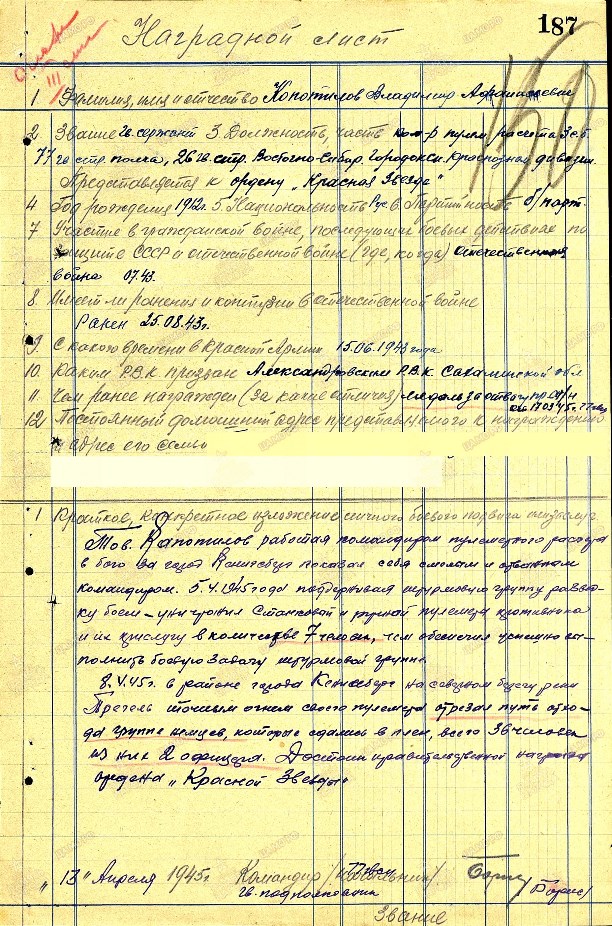 187
Наградной лист
1 Фамилия, имя и отчество Копотилов Владимир Афанасьевич
2 Звание гв. сержант 3 Должность, часть ком-р пулем. расчета 3 с.б.
77 гв. стр. полка, 26 гв. стр. Восточно-Сибир. Городокск. Краснозн. дивизии.
Представляется к ордену „Красная Звезда"
4 Год рождения 1912г. 5. Национальность Рус. 6. Партийность б/парт.
7 Участие в гражданской войне, последующих боевых действиях по
защите СССР и отечественной войне (где, когда) Отечественная
война 07.43.
8 Имеет ли ранения и контузии в отечественной войне
Ранен 25.08.43г.
9. С какого времени в Красной Армии 15.06.1943 года
10. Каким РВК призван Александровским РВК Сахалинской обл
11. Чем ранее награжден (за какие отличия) медаль за отвагу
12 Постоянный домашний адрес представляемого к награждению
и адрес его семьи
1 Краткое, конкретное изложение личного боевого подвига
Тов. Капотилов работая командиром пулеметного расчета
в бою за город Кенигсберг показал себя смелым и отважным
командиром. 5.4.1945 года поддерживая штурмовую группу развед-
ку боем – уничтожил станковой и ручной пулемета противника
и их прислугу в количестве 7 человек, чем обеспечил успешно вы-
полнить боевую задачу штурмовой группе.
8.4.45г. в районе города Кенигсберг на северном берегу реки
Прегель точным огнем своего пулемета отрезал путь отхо-
да группе немцев, которые сдались в плен, всего 36 человек
из них 2 офицера. Достоин правительственной награды
ордена „Красной Звезды"
„13" Апреля 1945г. Командир (начальник)
гв. подполковник
Звание